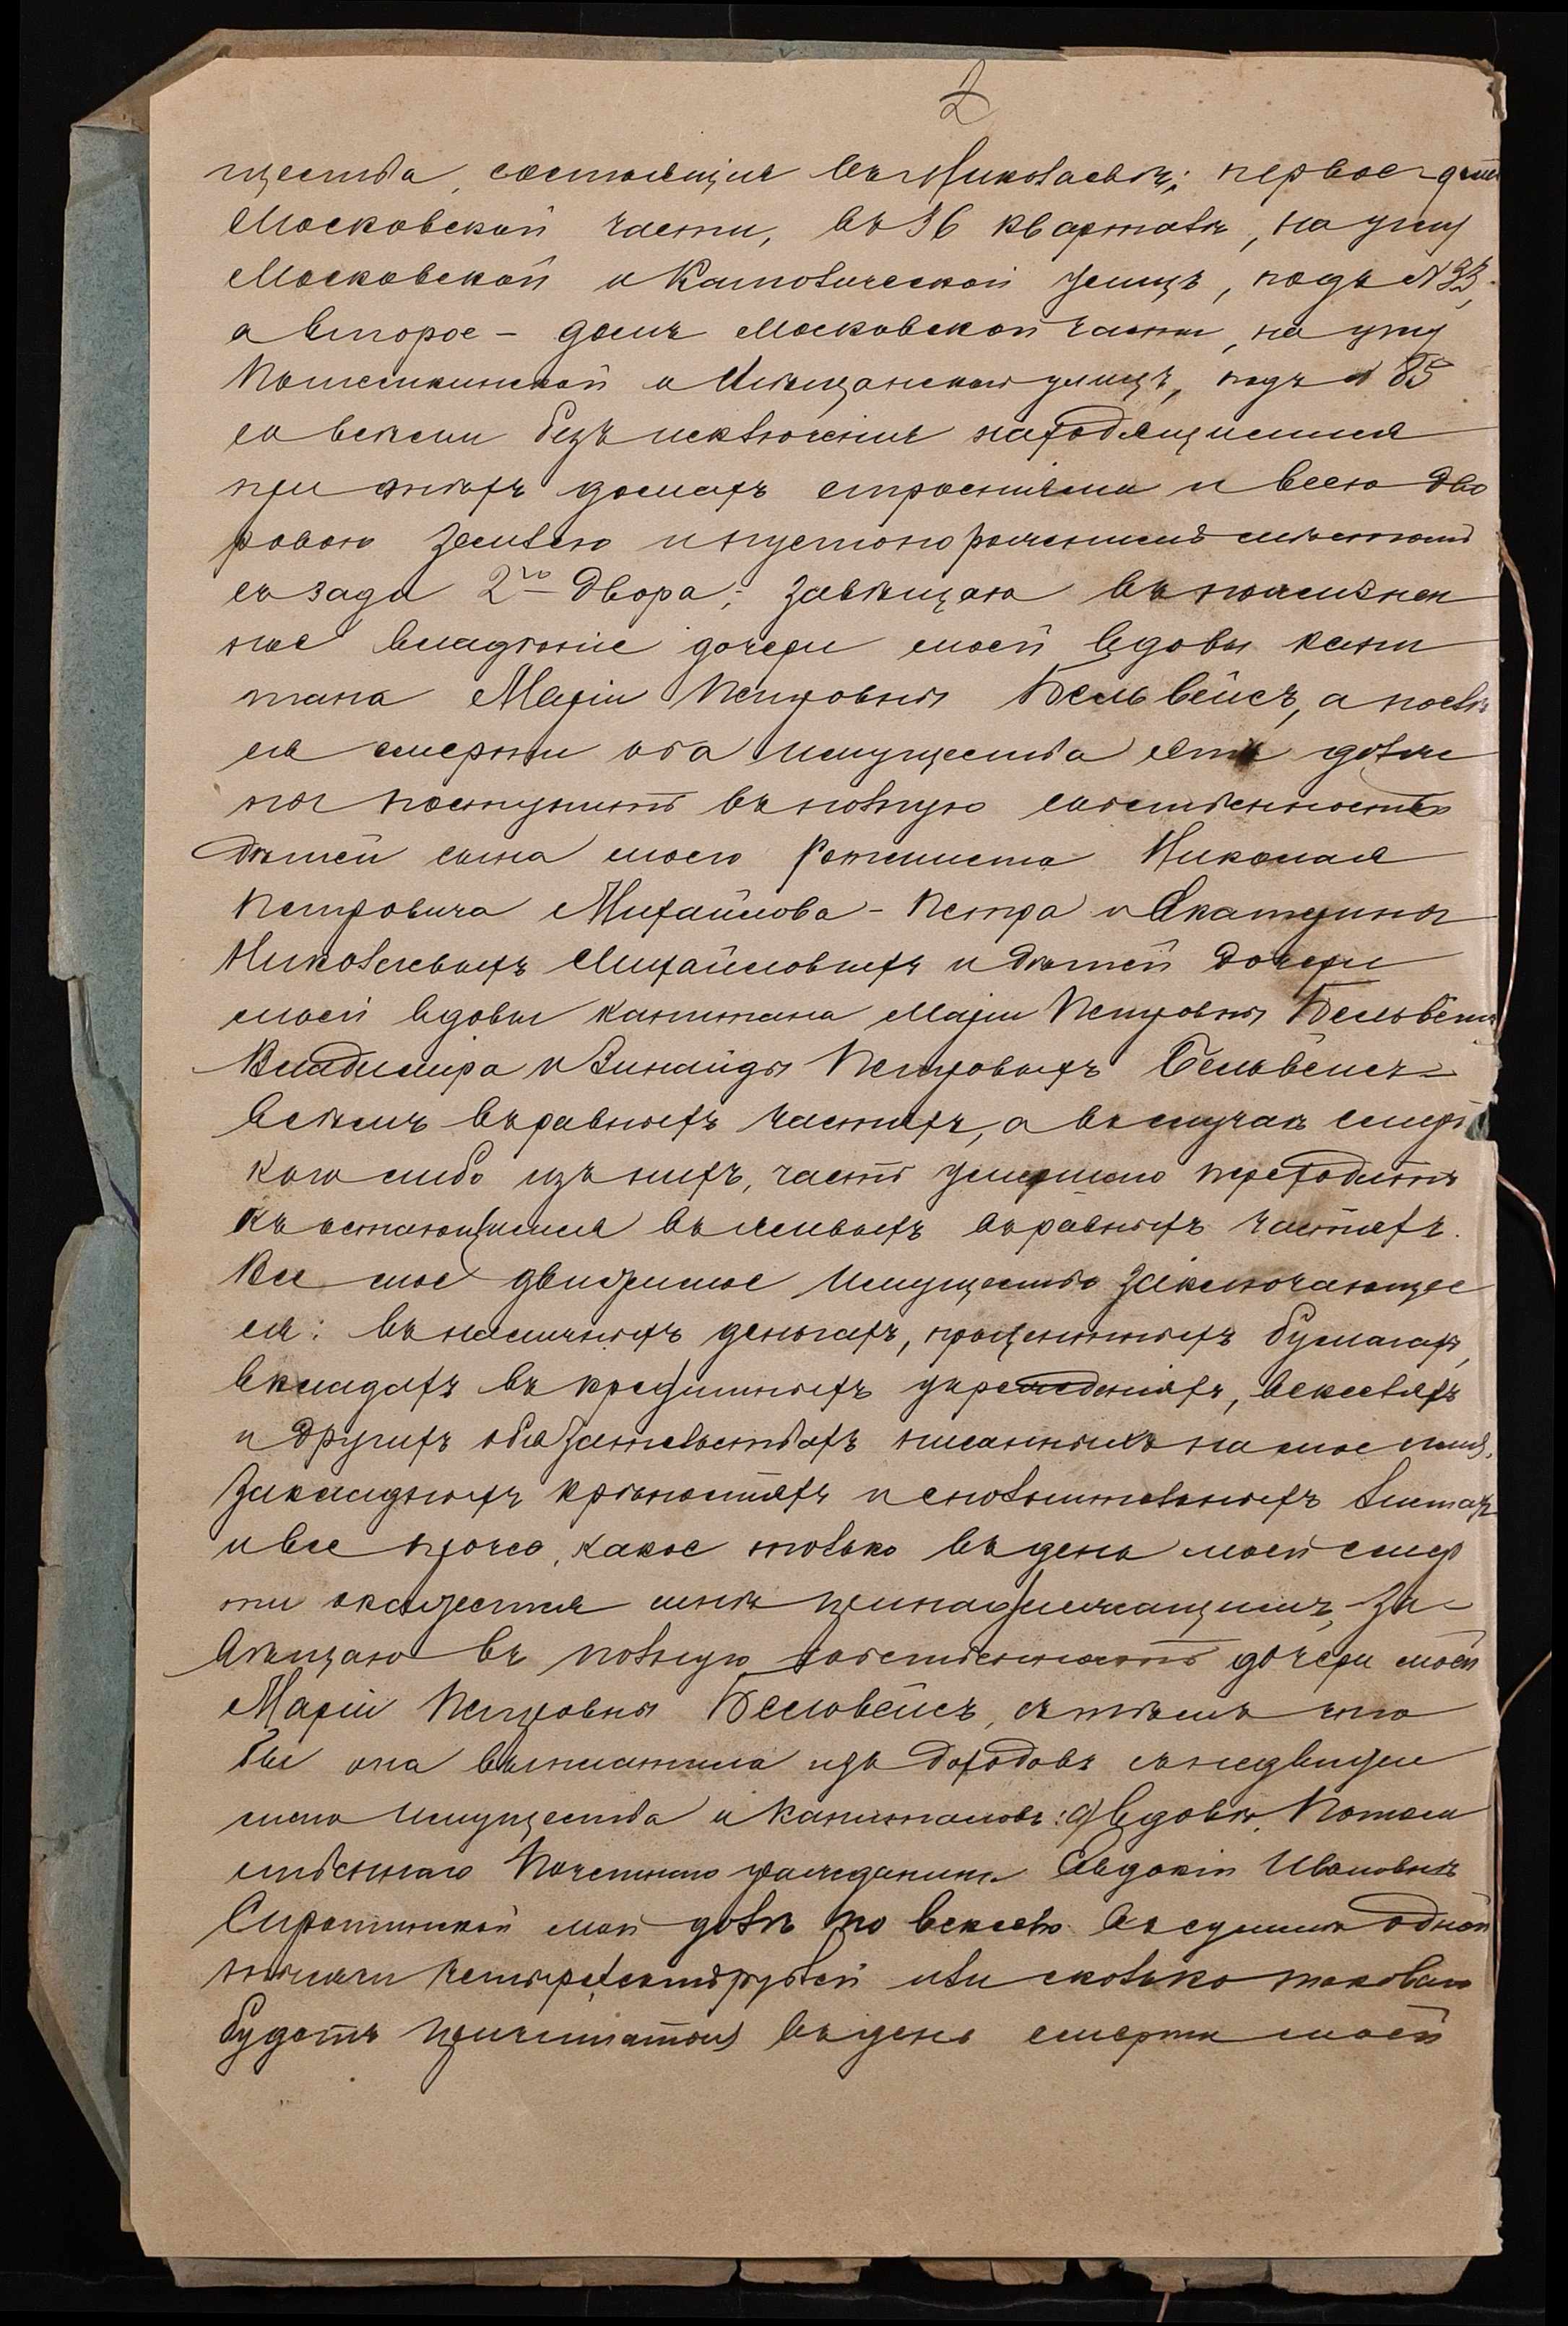 2
щества, состоящія въ Николаевѣ: первое - домъ
Московской части, въ 36 кварталѣ, на углу
Московской и Католической улицъ, подъ № 33,
а второе - домъ Московской части, на углу
Потемкинской и Мѣщанской улицъ, подъ № 85
со всѣми безъ исключенія находящимися
при этихъ домахъ строеніями и всею дво
ровою землею и пустопорожнимъ мѣстомъ
съ зади 2го двора; завѣщаю въ пожизнен
ное владѣніе дочери моей вдовы капи
тана Маріи Петровнѣ Бельвейсъ, а послѣ
ея смерти оба имущества эти долж
ны поступить въ полную собственность
дѣтей сына моего Ротмистра Николая
Петровича Михайлова - Петра и Екатерины
Николаевыхъ Михайловыхъ и дѣтей дочери
моей вдовы капитана Маріи Петровны Бельвейсъ
Владиміра и Зинаиды Петровыхъ Бельвейсъ -
всѣмъ въ равныхъ частяхъ, а въ случаѣ смерти
кого либо изъ нихъ, часть умершаго переходитъ
къ остающимся въ живыхъ въ равныхъ частяхъ.
Все мое движимое имущество заключающее
ся: въ наличныхъ деньгахъ, процентныхъ бумагахъ,
вкладахъ въ кредитныхъ учрежденіяхъ, векселяхъ
и другихъ обязательствахъ писанныхъ на мое имя,
закладныхъ крѣпостяхъ и исполнительныхъ листахъ
и все прочее, какое только въ день моей смер
ти окажется мнѣ принадлежащимъ, за-
вѣщаю въ полную собственность дочери моей
Маріи Петровны Бельвейсъ, съ тѣмъ что
бы она выплатила изъ доходовъ съ недвижи
маго имущества и капиталовъ: а) вдовѣ Потом
ственнаго Почетнаго гражданина Евдокіи Ивановнѣ
Сиротинской мой долгъ по векселю въ суммѣ одной
тысячи четырехсотъ рублей или сколько таковаго
будетъ причитаться въ день смерти моей